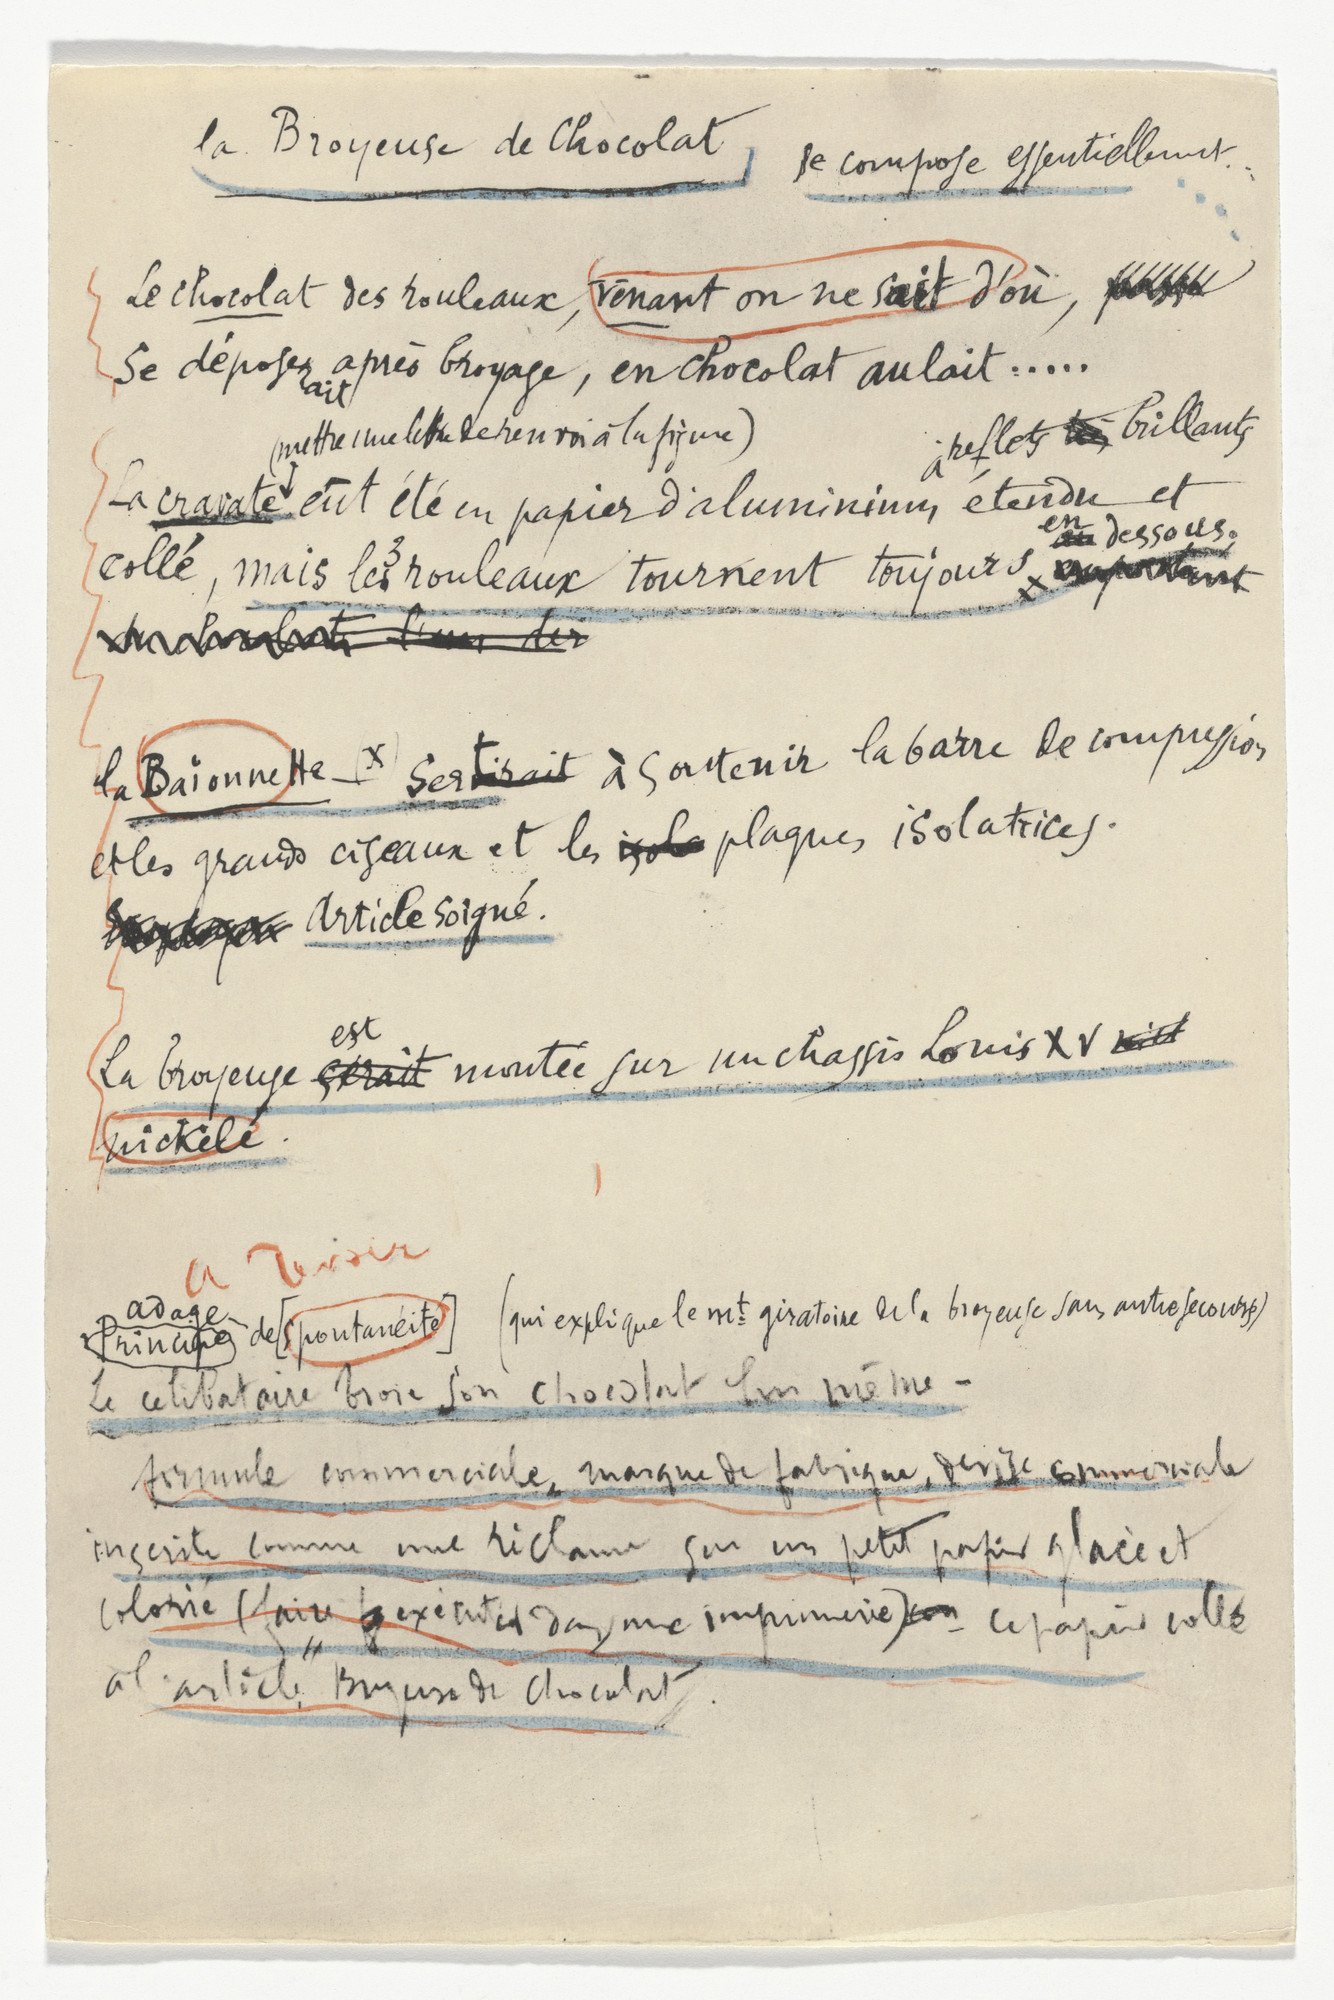 la Broyeuse de Chocolat se compose essentiellement..
Le chocolat des rouleaux, venant on ne sait d'où,
se déposer ait après broyage, en chocolat au lait .....
(mettre une lettre de renvoi à la figure) à reflets brillants
La cravate eût été en papier d'aluminium, étendu et
collé, mais les 3 rouleaux tournent toujours en dessous.
l'un des
la Baïonnette (x) sertirait à soutenir la barre de compression
et les grands ciseaux et les isola plaques isolatrices.
Article soigné.
est
La broyeuse serait montée sur un chassis Louis XV
nickelé.
A revoir
adage
Principe de [spontanéité] (qui explique le mt giratoire de la broyeuse sans autre secours)
Le célibataire broie son chocolat lui même -
formule commerciale, marque de fabrique, devise commerciale
inscrite comme une réclame sur un petit papier glacé et
colorié (faire exécuter dans une imprimerie) - ce papier collé
à l'article "Broyeuse de Chocolat".